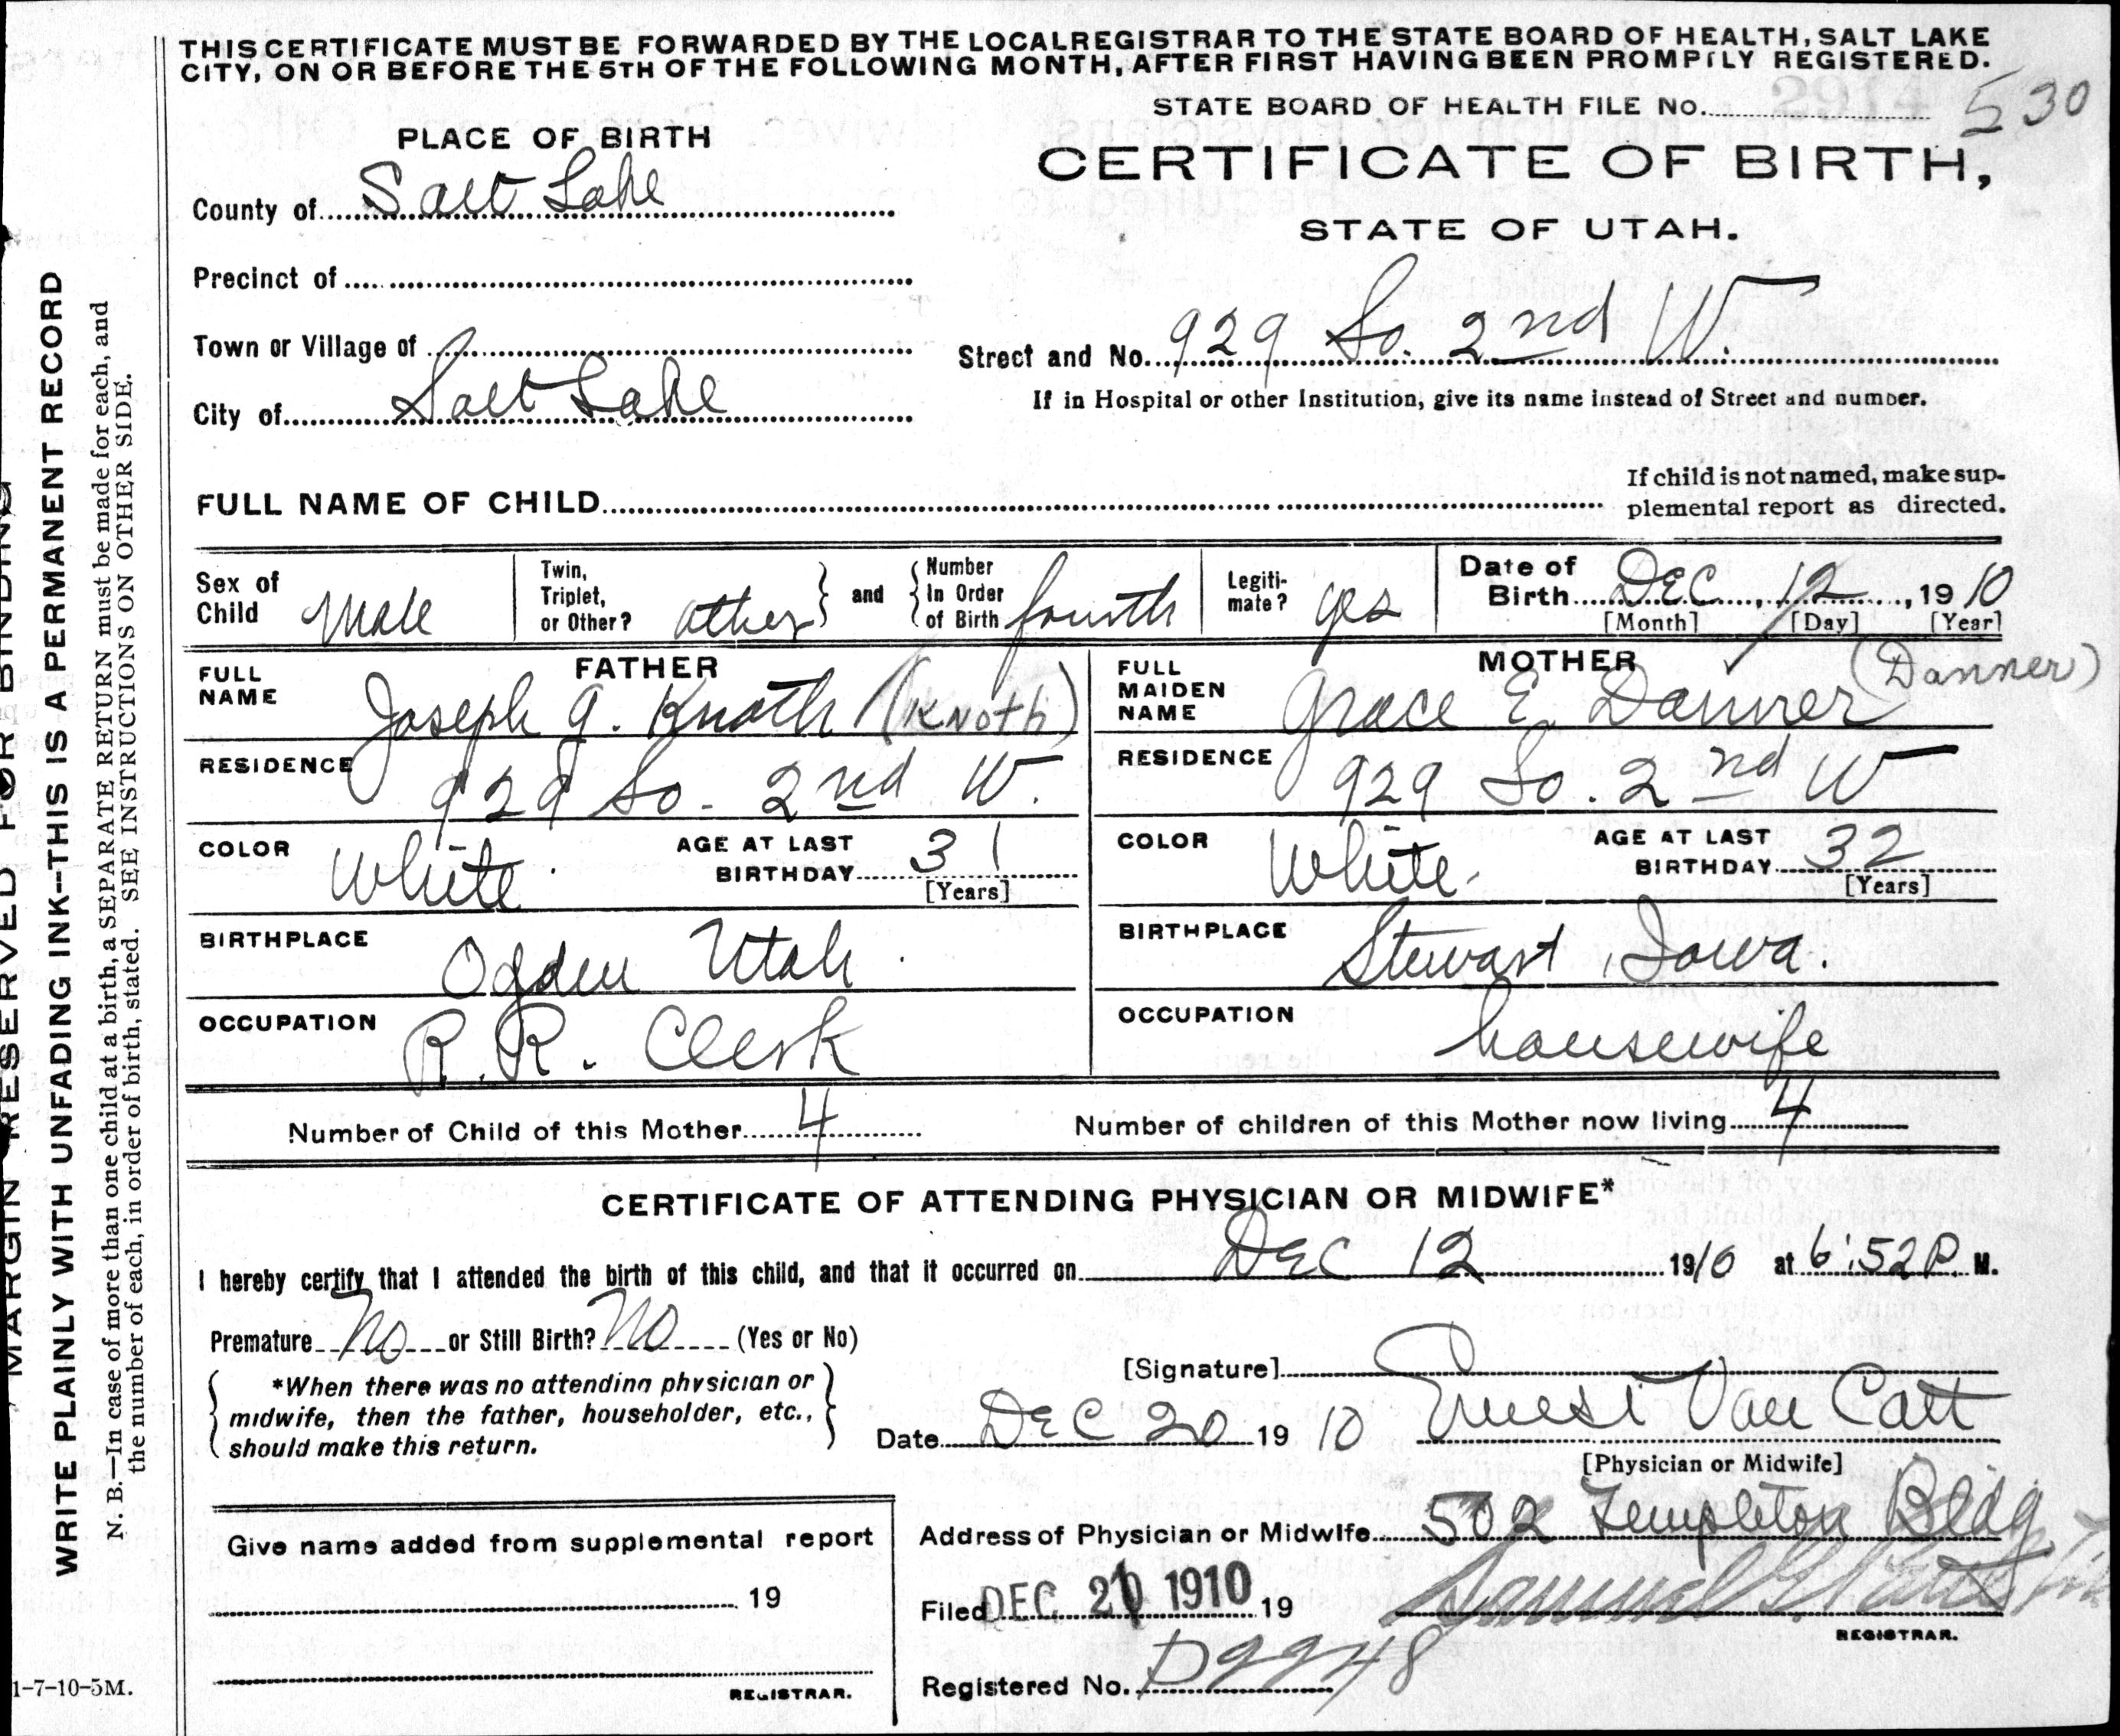 THIS CERTIFICATE MUST BE FORWARDED BY THE LOCAL REGISTRAR TO THE STATE BOARD OF HEALTH, SALT LAKE
CITY, ON OR BEFORE THE 5TH OF THE FOLLOWING MONTH, AFTER FIRST HAVING BEEN PROMPTLY REGISTERED.
STATE BOARD OF HEALTH FILE No. 530
PLACE OF BIRTH
CERTIFICATE OF BIRTH,
STATE OF UTAH.
County of Salt Lake
Precinct of
Town or Village of
Street and No. 929 So. 2nd W.
City of Salt Lake
If in Hospital or other Institution, give its name instead of Street and number.
FULL NAME OF CHILD
If child is not named, make sup-
plemental report as directed.
Sex of Child Male
Twin, Triplet, or Other? other
and
Number In Order of Birth fourth
Legiti-mate? yes
Date of Birth DEC 12, 1910
[Month] [Day] [Year]
FATHER
FULL NAME Joseph G. Knoth (Knoth)
RESIDENCE 929 So. 2nd W.
COLOR White
AGE AT LAST BIRTHDAY 31
[Years]
BIRTHPLACE Ogden Utah.
OCCUPATION R.R. Clerk
MOTHER
FULL MAIDEN NAME Grace E. Danner (Danner)
RESIDENCE 929 So. 2nd W
COLOR White.
AGE AT LAST BIRTHDAY 32
[Years]
BIRTHPLACE Stewart, Iowa.
OCCUPATION housewife
Number of Child of this Mother 4
Number of children of this Mother now living 4
CERTIFICATE OF ATTENDING PHYSICIAN OR MIDWIFE*
I hereby certify that I attended the birth of this child, and that it occurred on DEC 12 1910 at 6:52 P. M.
Premature No or Still Birth? No (Yes or No)
*When there was no attending physician or
midwife, then the father, householder, etc.,
should make this return.
[Signature]
Date DEC 20 1910 Ernest Van Cott
[Physician or Midwife]
Address of Physician or Midwife 502 Templeton Bldg
Give name added from supplemental report
19
REGISTRAR.
Filed DEC 1910 19
Samuel G.
REGISTRAR.
Registered No. D2248
MARGIN RESERVED FOR BINDING
WRITE PLAINLY WITH UNFADING INK—THIS IS A PERMANENT RECORD
N. B.—In case of more than one child at a birth, a SEPARATE RETURN must be made for each, and
the number of each, in order of birth, stated. SEE INSTRUCTIONS ON OTHER SIDE.
1-7-10-5M.